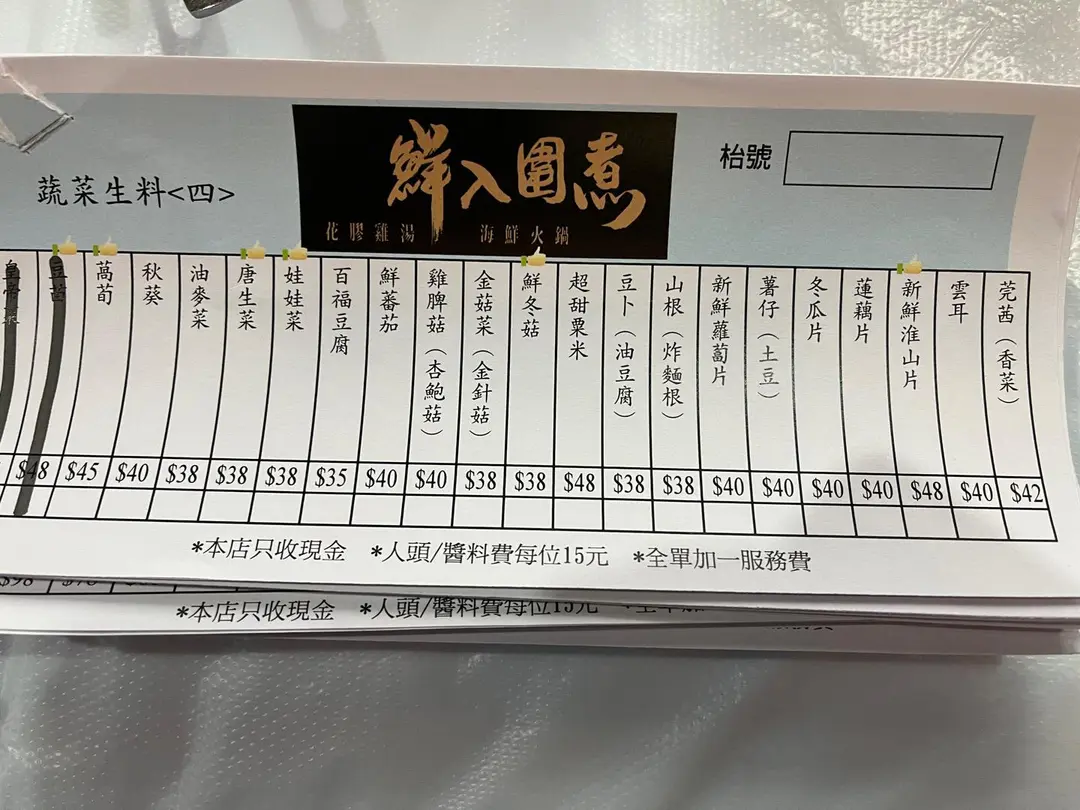 蔬菜生料<四>
鮮入圍煮
花膠雞湯
海鮮火鍋
枱號
莞茜（香菜） $42
雲耳 $40
新鮮淮山片 $48
蓮藕片 $40
冬瓜片 $40
薯仔（土豆） $40
新鮮蘿蔔片 $40
山根（炸麵根） $38
豆卜（油豆腐） $38
超甜粟米 $48
鮮冬菇 $38
金菇菜（金針菇） $38
雞脾菇（杏鮑菇） $40
鮮蕃茄 $40
百福豆腐 $35
娃娃菜 $38
唐生菜 $38
油麥菜 $38
秋葵 $40
萵荀 $45
豆苗 $48
皇帝菜
*本店只收現金 *人頭/醬料費每位15元 *全單加一服務費
*本店只收現金 *人頭/醬料費每位15元